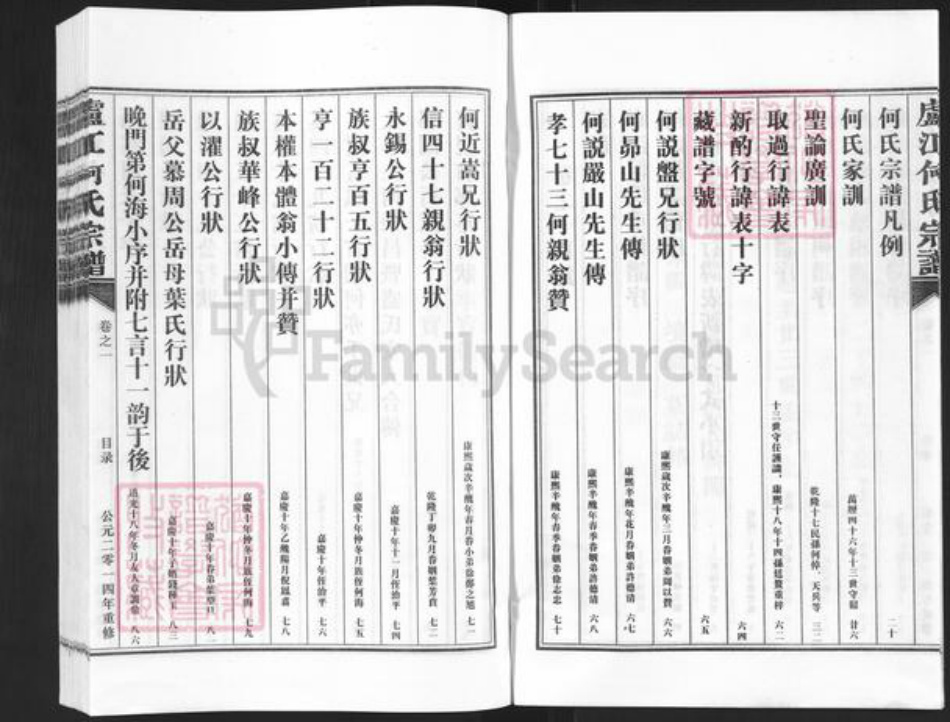 盧江何氏宗譜
何氏宗譜凡例 二十
何氏家訓 萬曆四十六年十三世守 廿六
聖諭廣訓 乾隆十七民孫何惇、天兵等 三二
取過行諱表 十三世守任謹識，康熙十八年十四孫廷贊重梓 六二
新酌行諱表十字 六四
藏譜字號 六五
何説盤兄行狀 康熙歲次辛酉年三月眷姻弟周以贊 六六
何昴山先生傳 康熙辛醜年花月眷姻弟許德清 六七
何説嚴山先生傳 康熙辛醜年春季眷姻弟許德清 六八
孝七十三何親翁贊 康熙辛醜年春季眷姻弟徐志忠 七十
何近嵩兄行狀 康熙歲次辛醜年春月眷小弟徐鄭之旭 七一
信四十七親翁行狀 乾隆丁卯九月眷姻葉芳賁 七二
永錫公行狀 嘉慶十年十一月侄治平 七四
族叔亨百五行狀 嘉慶十年仲冬月族侄何海 七五
亨一百二十二行狀 嘉慶十年侄治平 七六
本權本體翁小傳并贊 嘉慶十年乙醜陽月倪鳳喜 七八
族叔華峰公行狀 嘉慶十年仲冬月族侄何海 七九
以濯公行狀 嘉慶十年眷弟葉 八一
岳父慕周公岳母葉氏行狀 嘉慶十年子婿錢種玉 八三
晚門第何海小序并附七言十一韵于後 道光十八年冬月友人章 八六
盧江何氏宗譜
卷之一
目录
公元二零一四年重修
FamilySearch